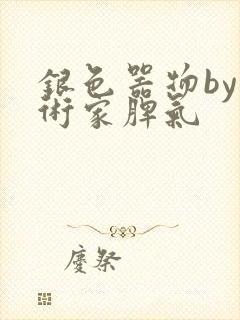 銀色器物by
術家脾氣
慶祭